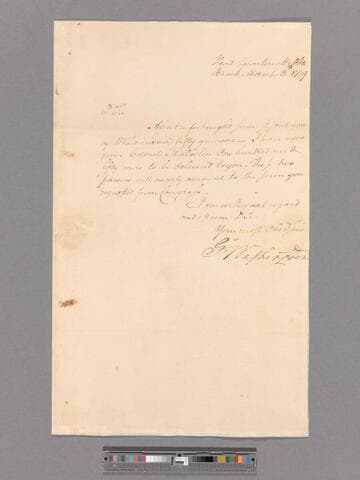 Head Quarters Middle
Brook March 3 1779
Sir
About a fortnight since I sent you
by Wm fifty guineas I have now
given Colonel one hundred and
fifty more to be delivered to you. These two
parcels will nearly amount to the sum you
requested from Congress
I am with great regard
and esteem Dr Sir
Your most Obed Serv
Go Washington